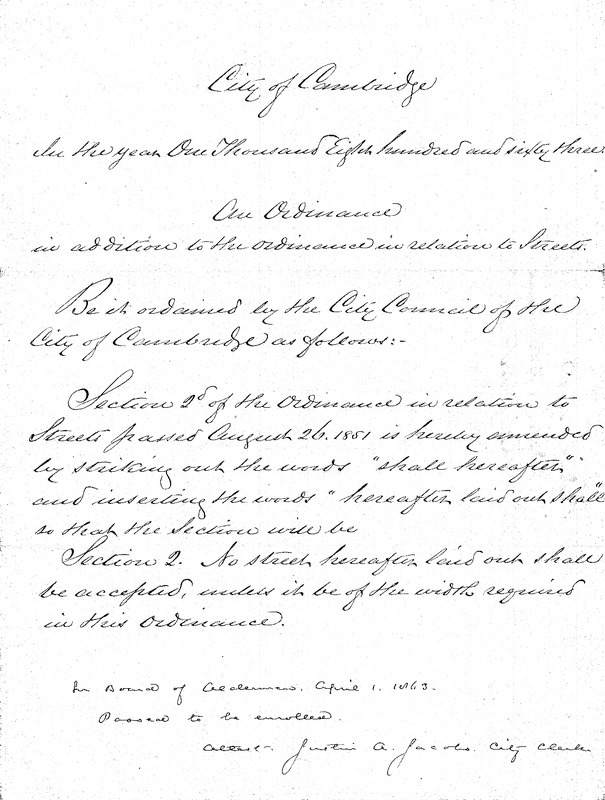 City of Cambridge
In the year One Thousand Eight hundred and sixty three
An Ordinance
in addition to the ordinance in relation to Streets.
Be it ordained by the City Council of the
City of Cambridge as follows:-
Section 2d of the Ordinance in relation to
Streets passed August 26. 1851 is hereby amended
by striking out the words "shall hereafter"
and inserting the words "hereafter laid out shall"
so that the Section will be
Section 2. No street hereafter laid out shall
be accepted, unless it be of the width required
in this Ordinance.
In Board of Aldermen. April 1. 1863.
Passed to be enrolled.
Attest- Justin A. Jacobs. City Clerk